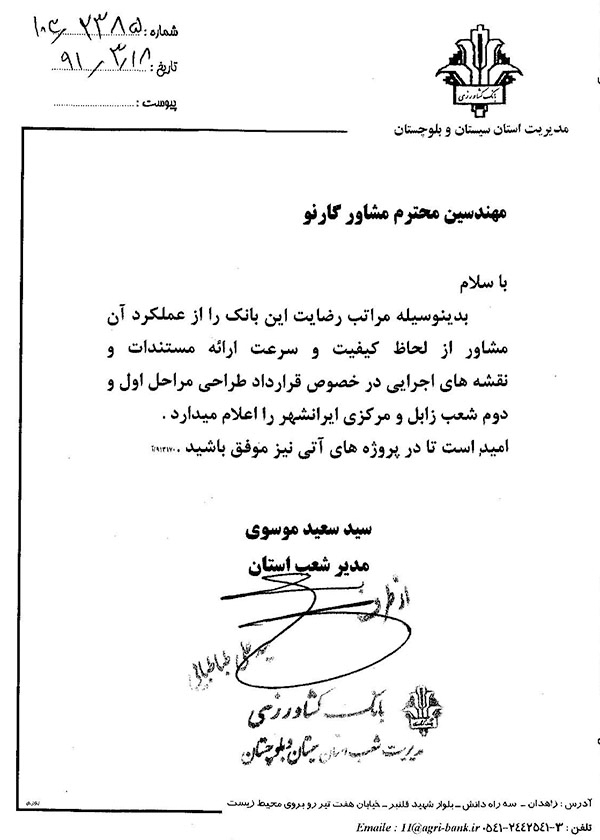 شماره : ۱۰۴/۲۳۸۵
تاریخ : ۹۱/۳/۱۸
پیوست :
بانک کشاورزی
مدیریت استان سیستان و بلوچستان
مهندسین محترم مشاور گارنو
با سلام
بدینوسیله مراتب رضایت این بانک را از عملکرد آن
مشاور از لحاظ کیفیت و سرعت ارائه مستندات و
نقشه های اجرایی در خصوص قرارداد طراحی مراحل اول و
دوم شعب زابل و مرکزی ایرانشهر را اعلام میدارد .
امید است تا در پروژه های آتی نیز موفق باشید .
سید سعید موسوی
مدیر شعب استان
از طرف
سید علی طباطبائی
بانک کشاورزی
مدیریت شعب استان سیستان و بلوچستان
آدرس : زاهدان – سه راه دانش – بلوار شهید قلنبر – خیابان هفت تیر رو بروی محیط زیست
تلفن : ۳-۲۴۴۲۵۴۱-۰۵۴۱ Emaile : 11@agri-bank.ir